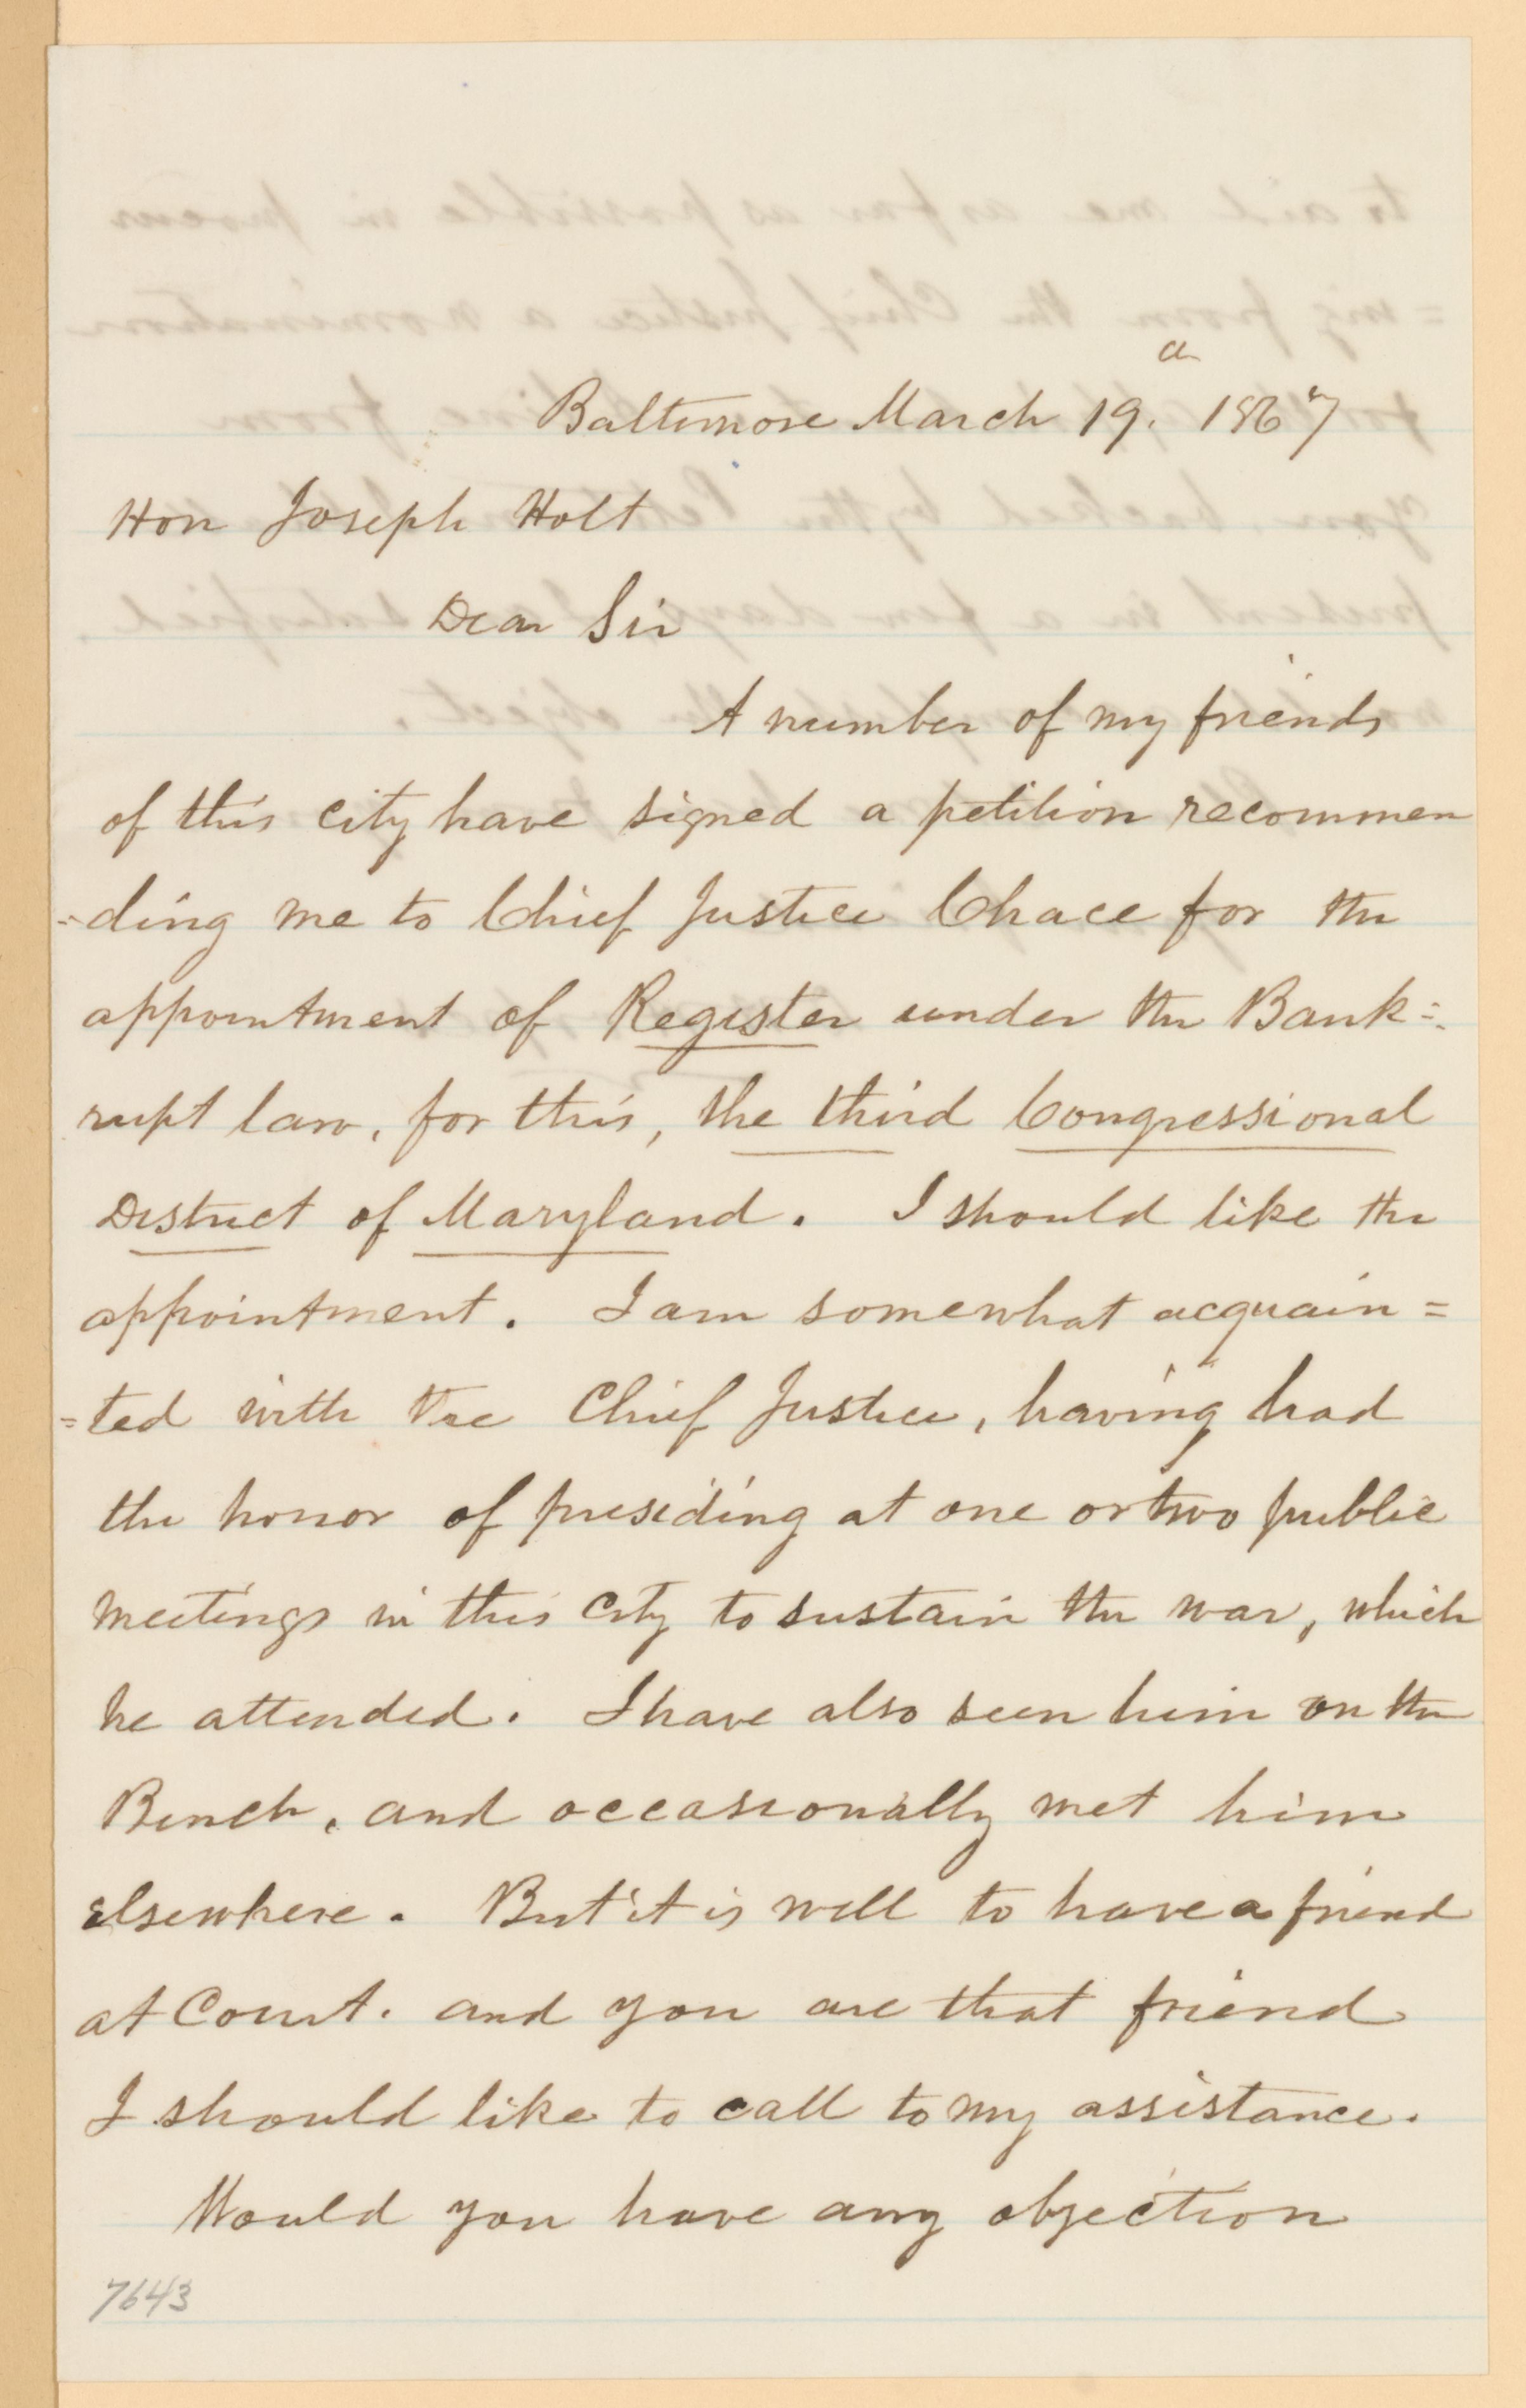 Baltimore March 19. 1867
Hon Joseph Holt
Dear Sir
A number of my friends
of this city have signed a petition recommen
=ding me to Chief Justice Chace for the
appointment of Register under the Bank=
rupt law, for this, the third Congressional
District of Maryland. I should like the
appointment. I am somewhat acquain=
=ted with the Chief Justice, having had
the honor of presiding at one or two public
meetings in this City to sustain the war, which
he attended. I have also seen him on the
Bench, and occasionally met him
elsewhere. But it is well to have a friend
at Court. and you are that friend
I should like to call to my assistance.
Would you have any objection
7643